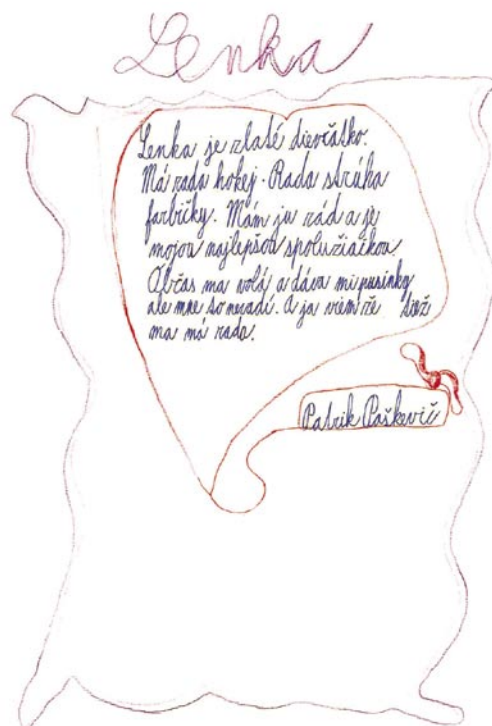 Lenka
Lenka je zlaté dievčatko.
Má rada hokej. Rada strúha
farbičky. Mám ju rád a je
mojou najlepšou spolužiačkou
Občas ma volá a dáva mi pusinky
ale mne to nevadí. A ja viem že tiež
ma má rada.
Patrik Paškevič